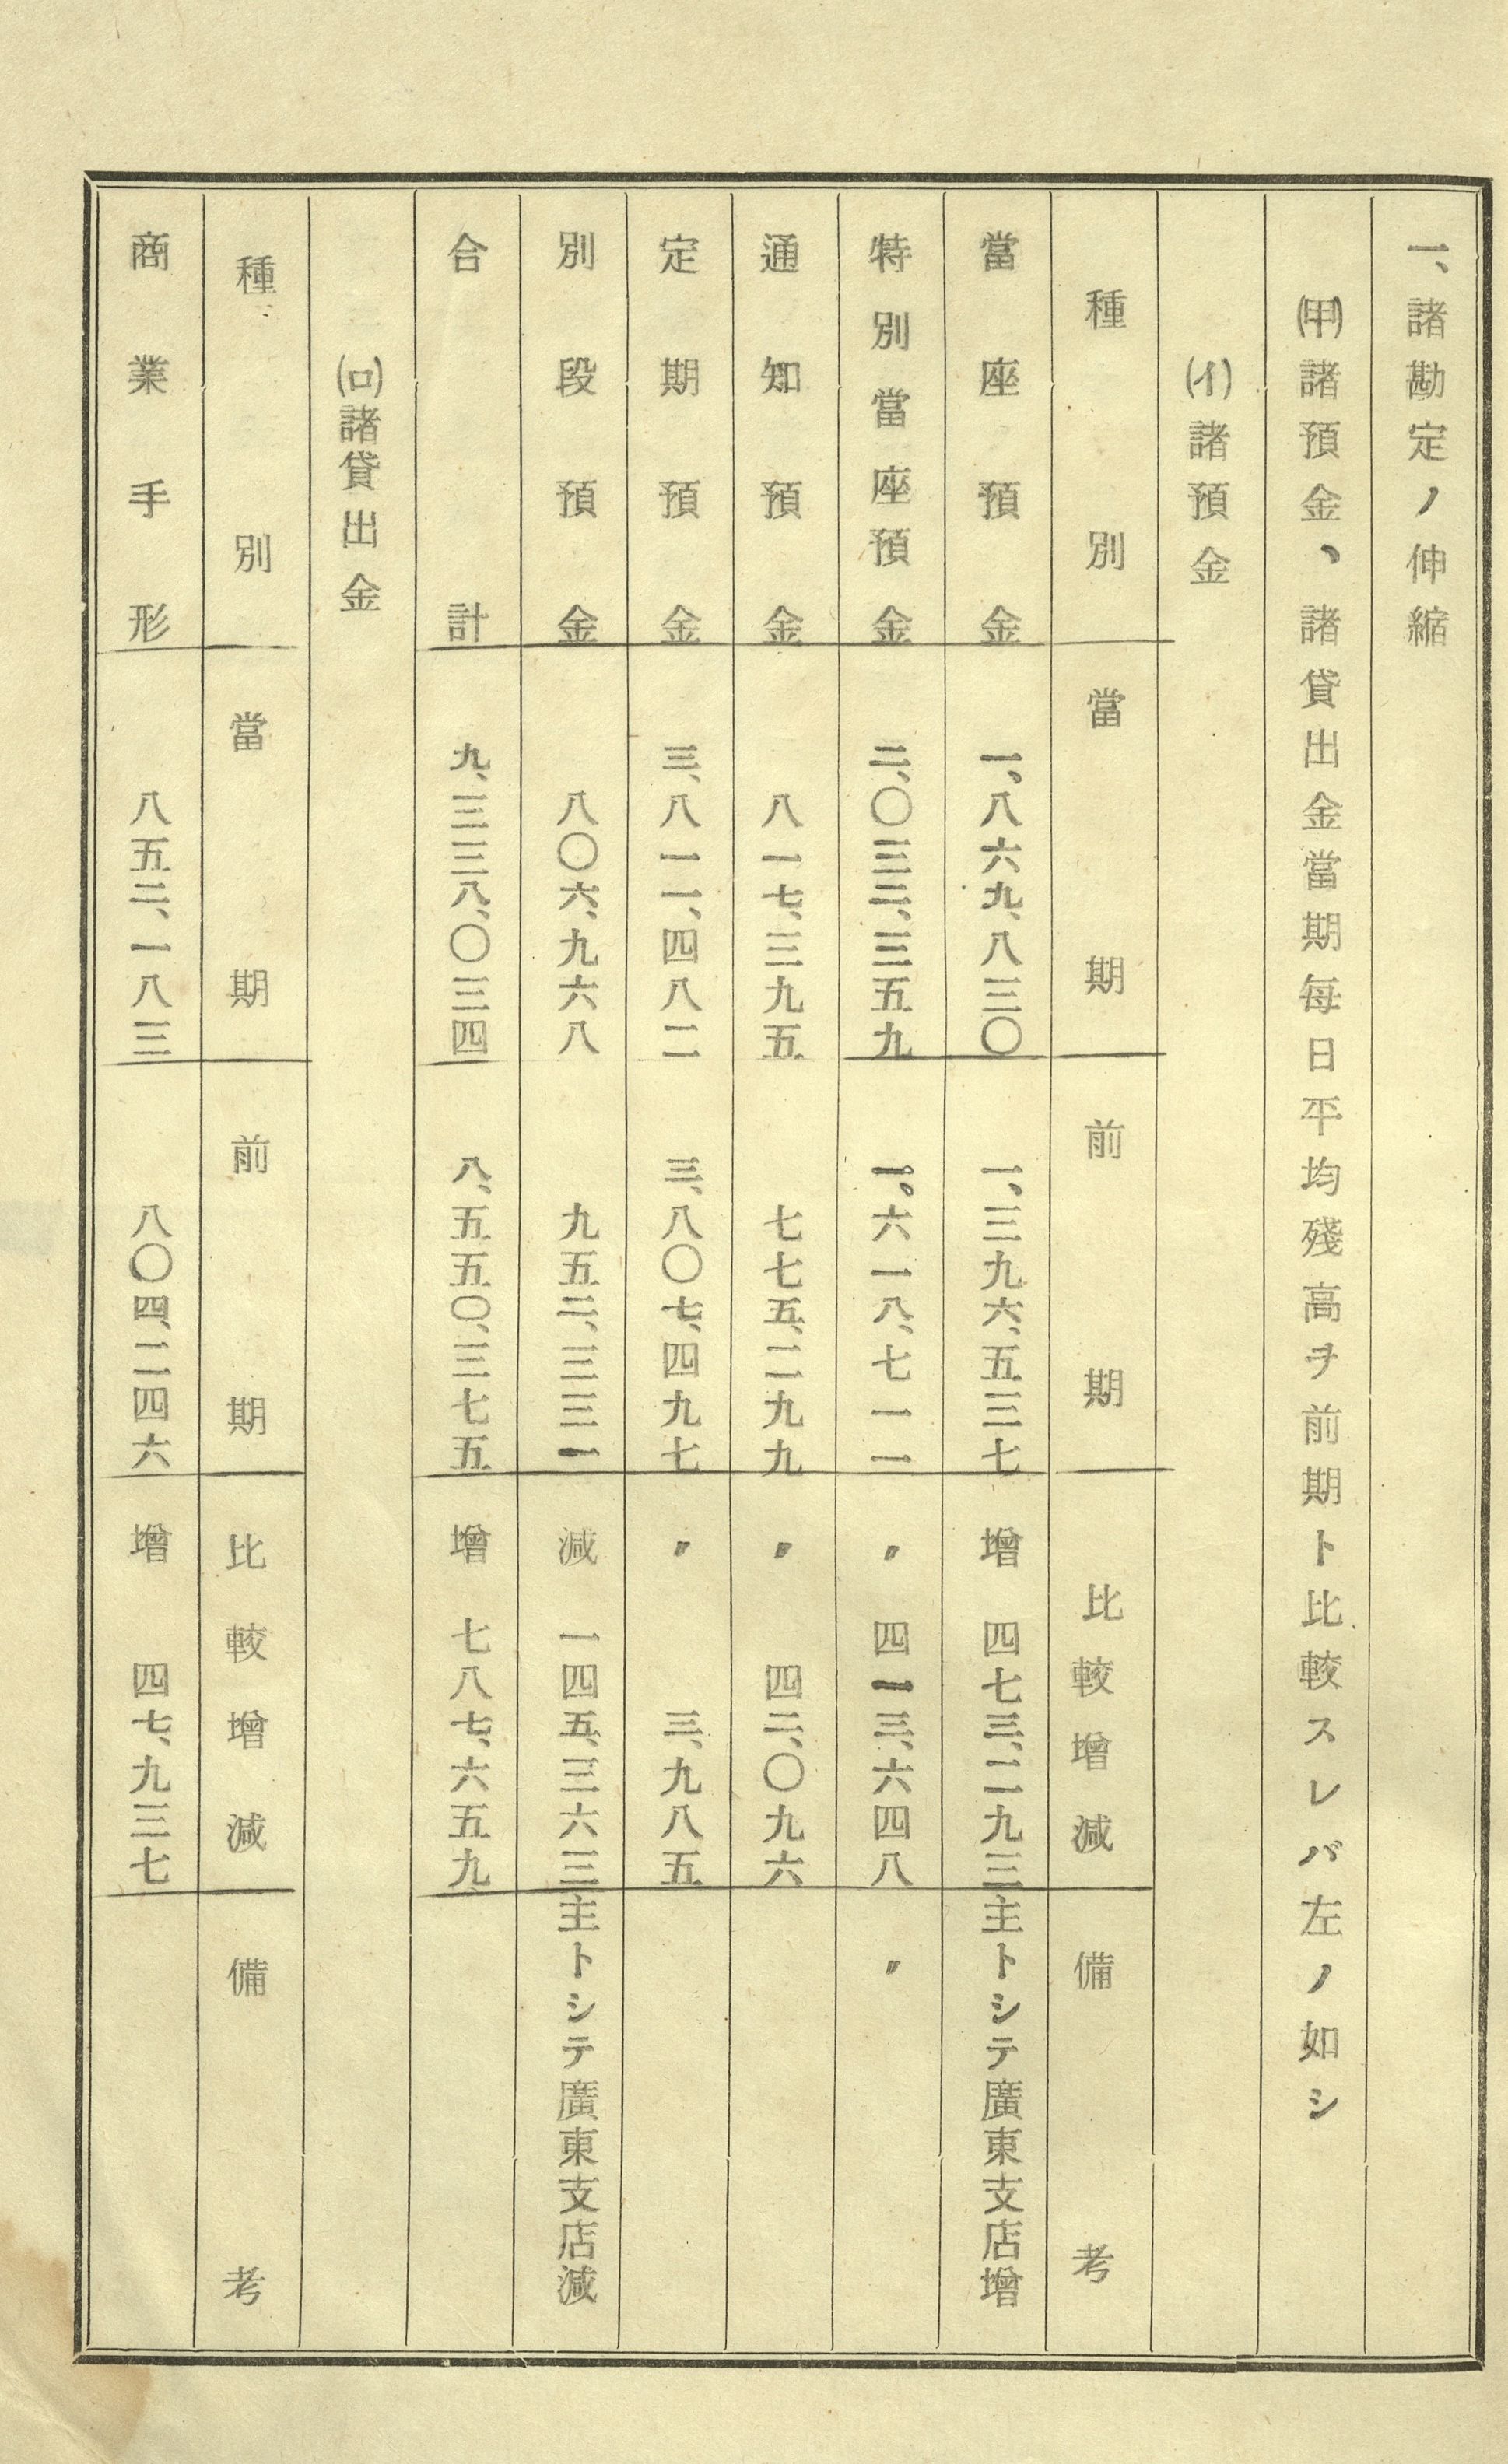 一、諸勘定ノ伸縮
(甲)諸預金、諸貸出金當期每日平均殘高ヲ前期ト比較スレバ左ノ如シ
(イ)諸預金
種別 當期 前期 比較增減 備考
當座預金 一、八六九、八三〇 一、三九六、五三七 增 四七三、二九三 主トシテ廣東支店增
特別當座預金 二、〇三二、三五九 一、六一八、七一一 〃 四一三、六四八 〃
通知預金 八一七、三九五 七七五、二九九 〃 四二、〇九六
定期預金 三、八一一、四八二 三、八〇七、四九七 〃 三、九八五
別段預金 八〇六、九六八 九五二、三三一 減 一四五、三六三 主トシテ廣東支店減
合計 九、三三八、〇三四 八、五五〇、三七五 增 七八七、六五九
(ロ)諸貸出金
種別 當期 前期 比較增減 備考
商業手形 八五二、一八三 八〇四、二四六 增 四七、九三七